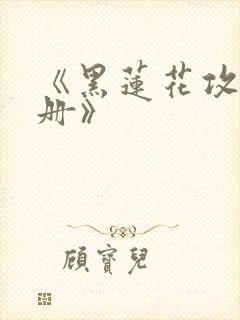 《黑蓮花攻
册》
顧寶兒